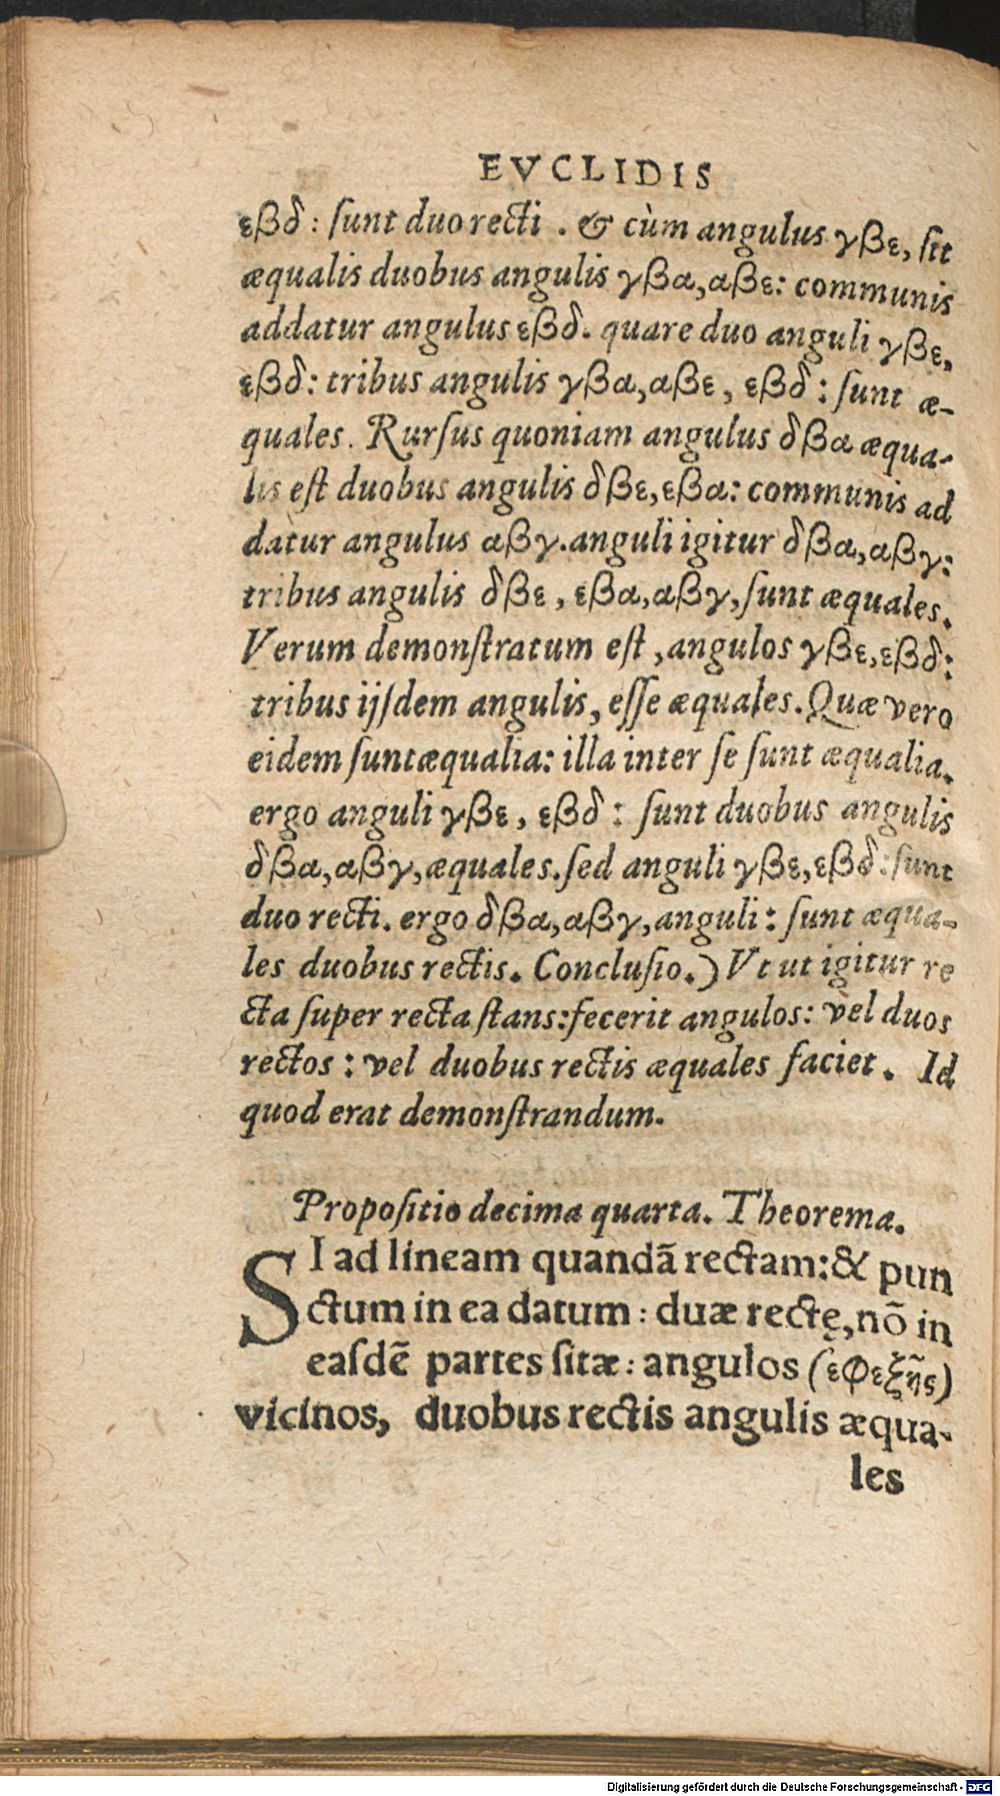 EVCLIDIS
εβδ: sunt duo recti . & cùm angulus γβε, sit
æqualis duobus angulis γβα,αβε: communis
addatur angulus εβδ. quare duo anguli γβε,
εβδ: tribus angulis γβα,αβε, εβδ: sunt æ-
quales. Rursus quoniam angulus δβα æqua-
lis est duobus angulis δβε,εβα: communis ad
datur angulus αβγ.anguli igitur δβα,αβγ:
tribus angulis δβε, εβα,αβγ,sunt æquales.
Verum demonstratum est ,angulos γβε,εβδ:
tribus ijsdem angulis, esse æquales. Quæ vero
eidem sunt æqualia: illa inter se sunt æqualia.
ergo anguli γβε, εβδ: sunt duobus angulis
δβα,αβγ,æquales.sed anguli γβε,εβδ: sunt
duo recti. ergo δβα,αβγ,anguli: sunt æqua-
les duobus rectis. Conclusio.) Vt ut igitur re
cta super recta stans:fecerit angulos: vel duos
rectos: vel duobus rectis æquales faciet. Id
quod erat demonstrandum.
Propositio decima quarta. Theorema.
SI ad lineam quandã rectam:& pun
ctum in ea datum: duæ rectę,nõ in
easdẽ partes sitæ: angulos (εφεξη̃ς)
vicinos, duobus rectis angulis æqua-
les
Digitalisierung gefördert durch die Deutsche Forschungsgemeinschaft - DFG